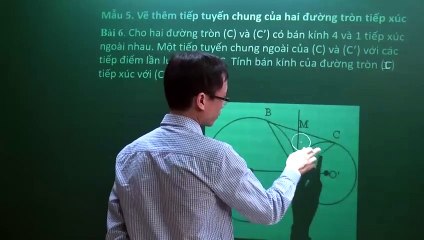 Mẫu 5. Vẽ thêm tiếp tuyến chung của hai đường tròn tiếp xúc
Bài 6. Cho hai đường tròn (C) và (C') có bán kính 4 và 1 tiếp xúc
ngoài nhau. Một tiếp tuyến chung ngoài của (C) và (C') với các
tiếp điểm lần Tính bán kính của đường tròn
tiếp xúc với (C
B
M
C
O'